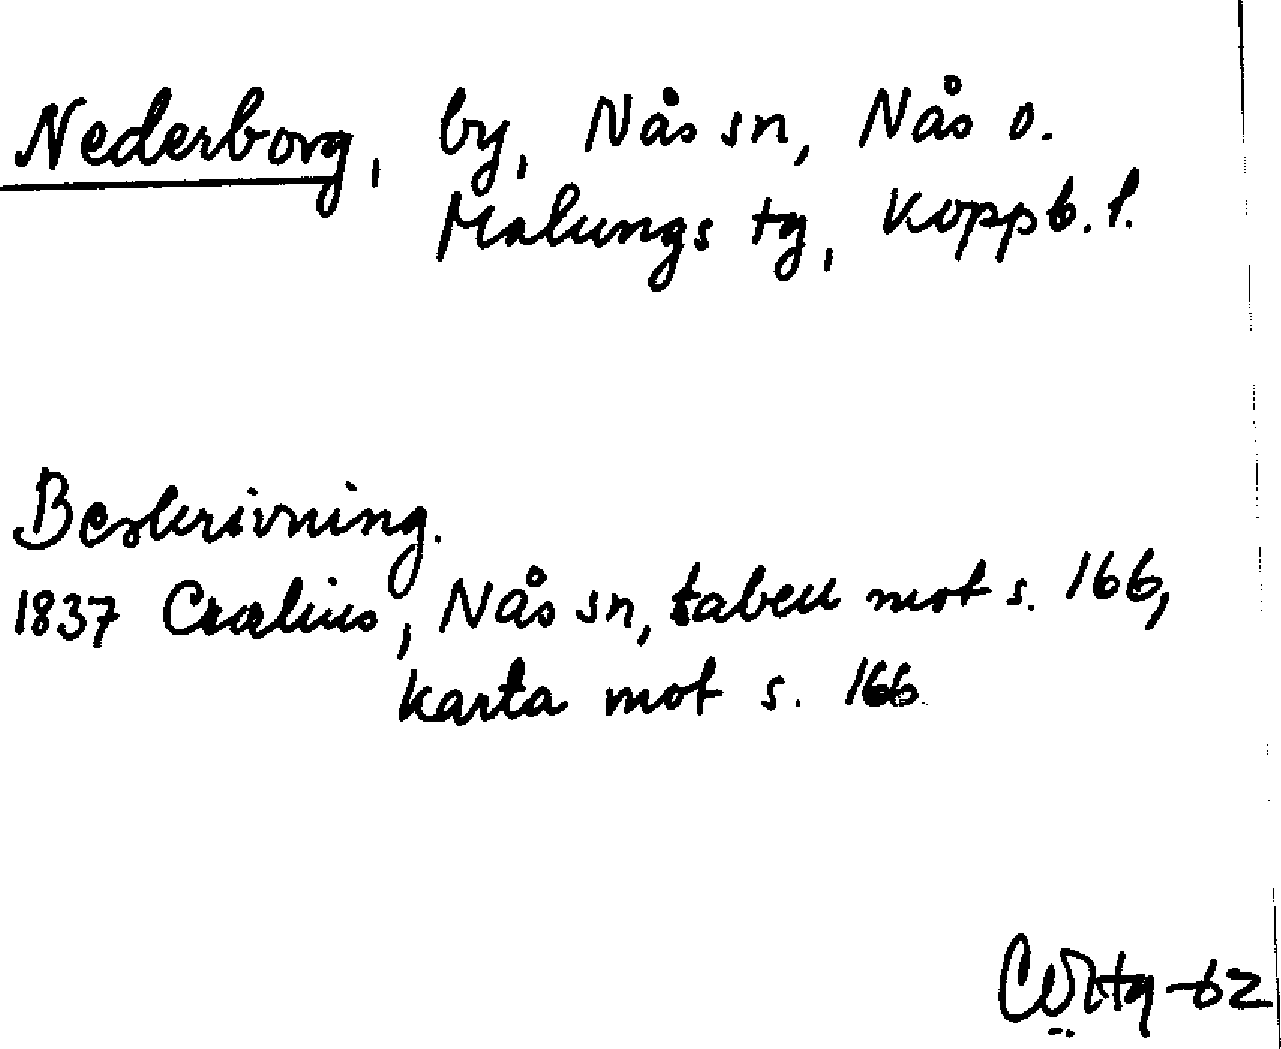 Nederborg, by, Nås sn, Nås o.
Malungs tg, Koppb. l.
Beskrivning.
1837 Crælius, Nås sn, tabell mot s. 166,
karta mot s. 166
-62